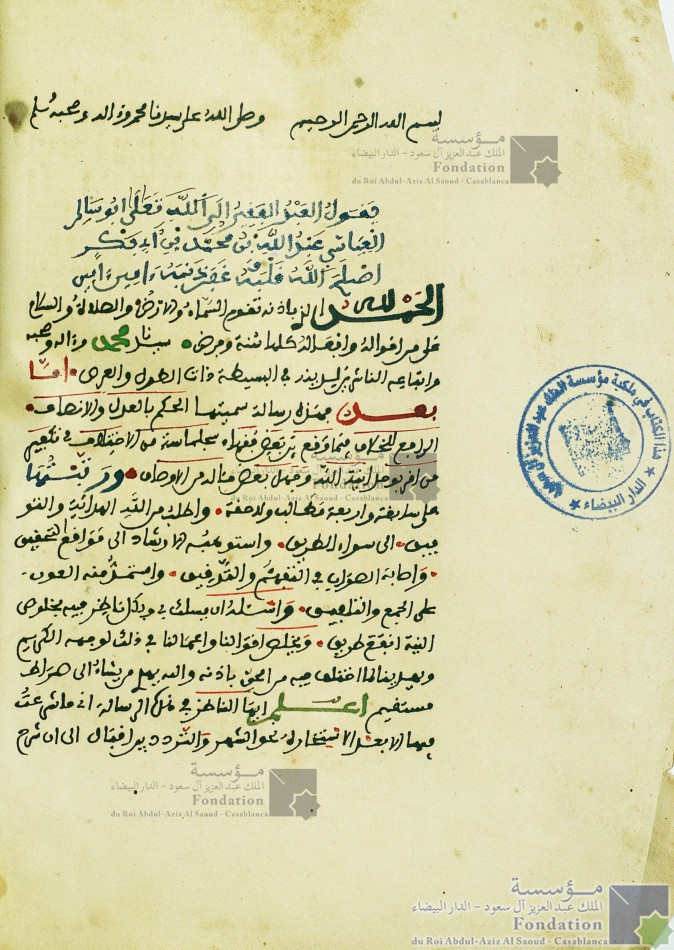 بسم الله الرحمن الرحيم وصلى الله على سيدنا محمد وءاله وصحبه وسلم
يقول العبد الفقير إلى الله تعالى أبو سالم
العياشي عبد الله بن محمد بن أبي بكر
اصلح الله قلبه وغفر ذنبه ءامين ءامين
الحمد لله الذي باذنه تقوم السماء والارض والصلاة والسلام
على من اقواله وافعاله كلها سنة وفرض سيدنا محمد وءاله وصحبه
واتباعه الناشرين لدينه في البسيطة ذات الطول والعرض اما
بعد فهذه رسالة سميتها الحكم بالعدل والانصاف
الرافع للخلاف فيما وقع بين بعض فقهاء سجلماسة من الاختلاف في تكفير
من اقر بوحدانية الله وجهل بعض ما له من الاوصاف ورتبتها
على سابقة واربعة مطالب ولاحقة واطلب من الله الهداية والتو
فيق الى سواء الطريق واستوهبه الارشاد الى مواقع التحقيق
واصابة الصواب في التفهم والتدقيق واستمد منه العون
على الجمع والتلفيق واسئله ان يسلك بي وبكل ناظر فيه بخلوص
النية انفع طريق ويجعل اقوالنا واعمالنا في ذلك لوجهه الكريم
ويهدينا لما اختلف فيه من الحق باذنه والله يهدي من يشاء الى صراط
مستقيم اعلم ايها الناظر في هذه الرسالة اني ما شرعت
فيها الا بعد الاستخارة نحو الشهر والتردد بين اقبال الى ان شرح
هذا الكتاب في ملكية مؤسسة الملك عبد العزيز آل سعود
الدار البيضاء
مؤسسة
الملك عبد العزيز آل سعود - الدار البيضاء
Fondation
du Roi Abdul-Aziz Al Saoud - Casablanca
مؤسسة
الملك عبد العزيز آل سعود - الدار البيضاء
Fondation
du Roi Abdul-Aziz Al Saoud - Casablanca
مؤسسة
الملك عبد العزيز آل سعود - الدار البيضاء
Fondation
du Roi Abdul-Aziz Al Saoud - Casablanca
مؤسسة
الملك عبد العزيز آل سعود - الدار البيضاء
Fondation
du Roi Abdul-Aziz Al Saoud - Casablanca